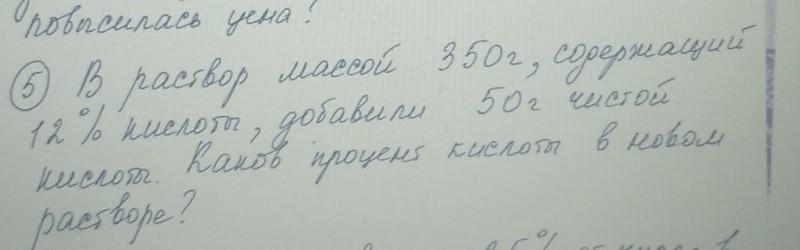 повысилась цена?
⑤ В раствор массой 350г, содержащий
12% кислоты, добавили 50г чистой
кислоты. Каков процент кислоты в новом
растворе?